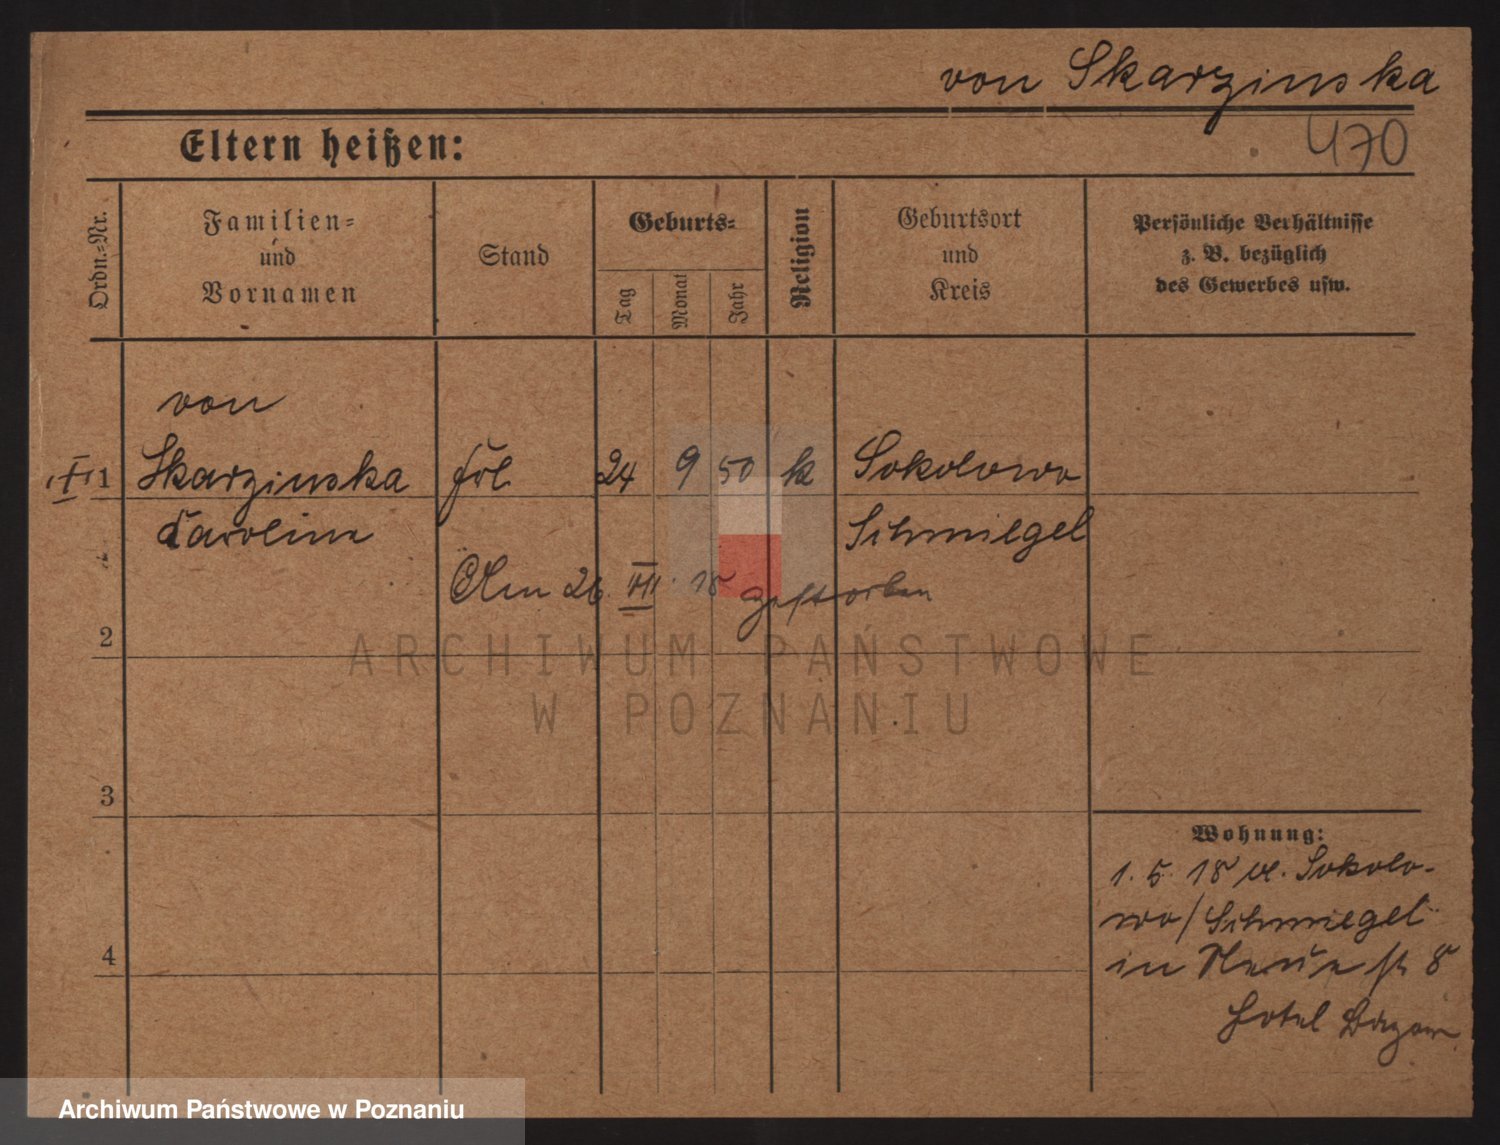 von Skarzinska
Eltern heißen:
470
Ordn.-Nr.
Familien-
und
Vornamen
Stand
Geburts-
Tag
Monat
Jahr
Religion
Geburtsort
und
Kreis
Persönliche Verhältnisse
z. B. bezüglich
des Gewerbes usw.
von
1 Skarzinska frl 24 9 50 k Sokolowo
Caroline Schmiegel
Am 26. III. 18 gestorben
2
ARCHIWUM PAŃSTWOWE
W POZNANIU
3
Wohnung:
1. 5. 18 v. Sokolo-
wo/Schmiegel
4
in Neue str 8
Hotel Bazar
Archiwum Państwowe w Poznaniu